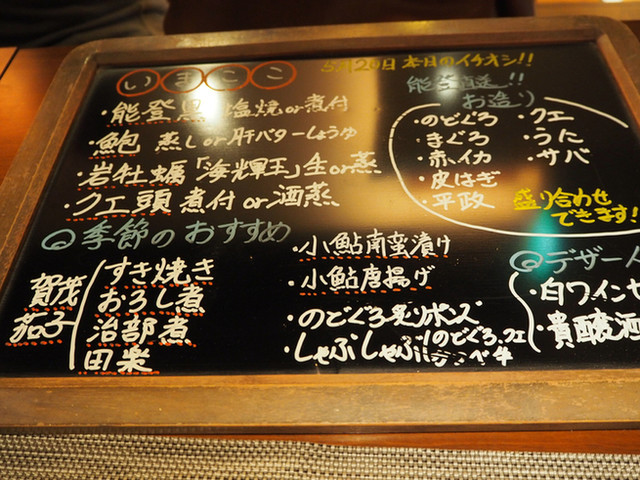 いまここ
5月20日 本日のイチオシ!!
・能登黒 塩焼or煮付
・鮑 蒸しor肝バターしょうゆ
・岩牡蠣「海輝王」生or蒸
・クエ頭 煮付or酒蒸
能登直送!!
お造り
・のどぐろ ・クエ
・まぐろ ・うに
・赤イカ ・サバ
・皮はぎ
・平政
盛り合わせ
できます!
季節のおすすめ
賀茂
茄子
すき焼き
おろし煮
治部煮
田楽
・小鮎南蛮漬け
・小鮎唐揚げ
・のどぐろ炙りポンズ
・しゃぶしゃぶ(のどぐろ、クエ
デザー
・白ワイン
・貴醸酒